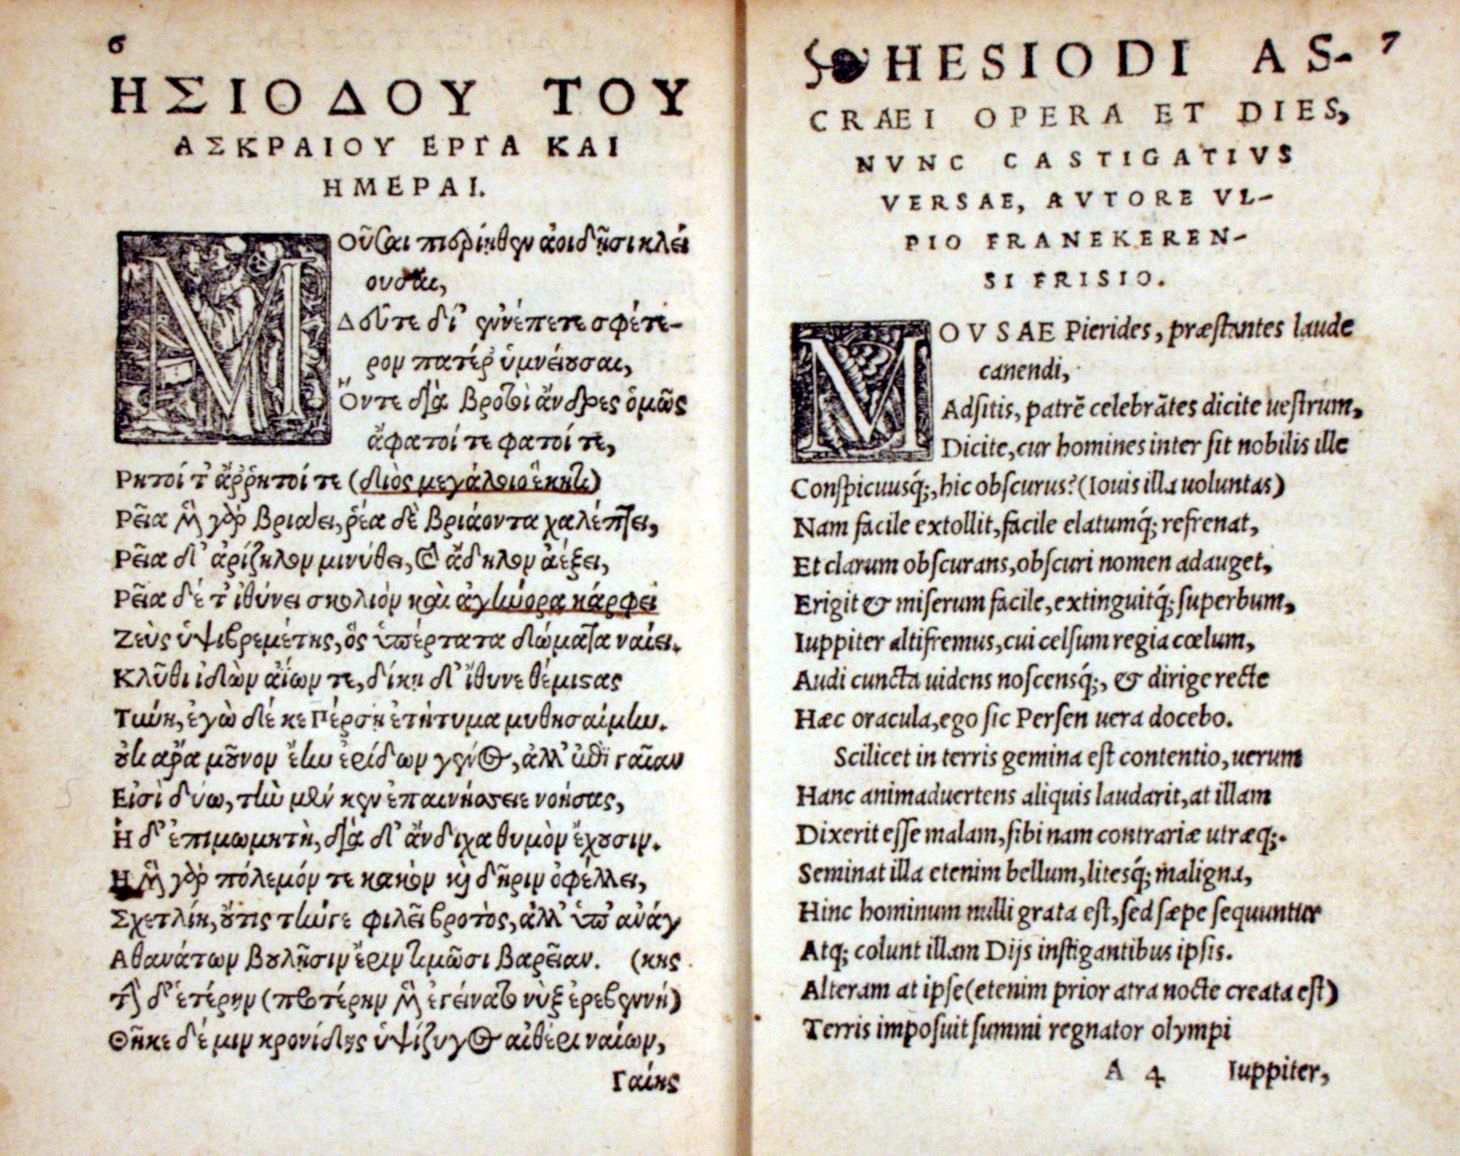 6
ΗΣΙΟΔΟΥ ΤΟΥ
ΑΣΚΡΑΙΟΥ ΕΡΓΑ ΚΑΙ
ΗΜΕΡΑΙ.
ΜΟῦσαι πιερίηθεν ἀοιδῇσι κλεί
ουσαι,
Δεῦτε δί' ἐννέπετε σφέτε-
ρον πατέρ ὑμνείουσαι,
Ὅντε διὰ βροτοὶ ἄνδρες ὁμῶς
ἄφατοί τε φατοί τε,
Ρητοί τ' ἄρρητοί τε (διὸς μεγάλοιο ἕκητι)
Ρεῖα μὲν γὰρ βριάει, ῥέα δὲ βριάοντα χαλέπτει,
Ρεῖα δ' ἀρίζηλον μινύθει, καὶ ἄδηλον ἀέξει,
Ρεῖα δέ τ' ἰθύνει σκολιὸν καὶ ἀγήνορα κάρφει
Ζεὺς ὑψιβρεμέτης, ὃς ὑπέρτατα δώματα ναίει.
Κλῦθι ἰδὼν ἀίων τε, δίκῃ δ' ἴθυνε θέμιστας
Τύνη, ἐγὼ δέ κε Πέρσῃ ἐτήτυμα μυθησαίμην.
οὐκ ἄρα μοῦνον ἔην ἐρίδων γένος, ἀλλ' ἐπὶ γαῖαν
Εἰσὶ δύω, τὴν μέν κεν ἐπαινήσειε νοήσας,
Ἡ δ' ἐπιμωμητὴ, διὰ δ' ἄνδιχα θυμὸν ἔχουσιν.
Ἡ μὲν γὰρ πόλεμόν τε κακὸν καὶ δῆριν ὀφέλλει,
Σχετλίη, οὔτις τήνγε φιλεῖ βροτὸς, ἀλλ' ὑπ' ἀνάγ
Αθανάτων βουλῇσιν ἔριν τιμῶσι βαρεῖαν. (κης
Τὴν δ' ἑτέρην (προτέρην μὲν ἐγείνατο νὺξ ἐρεβεννή)
Θῆκε δέ μιν κρονίδης ὑψίζυγος αἰθέρι ναίων,
Γαίης
7
HESIODI AS-
CRAEI OPERA ET DIES,
NVNC CASTIGATIVS
VERSAE, AVTORE VL-
PIO FRANEKEREN-
SI FRISIO.
MOVSAE Pierides, præstantes laude
canendi,
Adsitis, patrē celebrātes dicite uestrum,
Dicite, cur homines inter sit nobilis ille
Conspicuusq́;, hic obscurus? (Iouis illa uoluntas)
Nam facile extollit, facile elatumq́; refrenat,
Et clarum obscurans, obscuri nomen adauget,
Erigit & miserum facile, extinguitq́; superbum,
Iuppiter altifremus, cui celsum regia cœlum,
Audi cuncta uidens noscensq́;, & dirige recte
Hæc oracula, ego sic Persen uera docebo.
Scilicet in terris gemina est contentio, uerum
Hanc animaduertens aliquis laudarit, at illam
Dixerit esse malam, sibi nam contrariæ utræq;.
Seminat illa etenim bellum, litesq́; maligna,
Hinc hominum nulli grata est, sed sæpe sequuntur
Atq; colunt illam Dijs instigantibus ipsis.
Alteram at ipse (etenim prior atra nocte creata est)
Terris imposuit summi regnator olympi
A 4 Iuppiter,